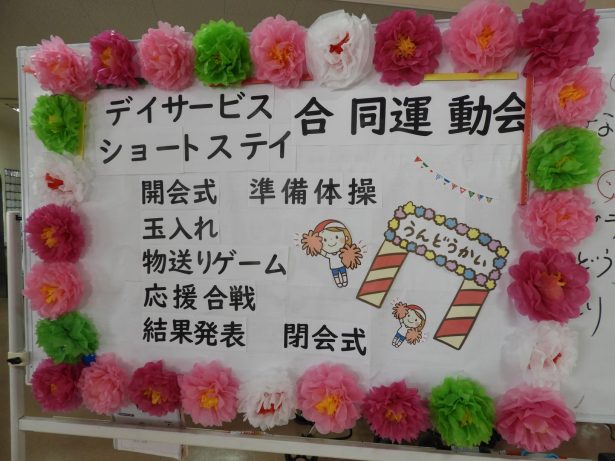 デイサービス
ショートステイ
合同運動会
開会式　準備体操
玉入れ
物送りゲーム
応援合戦
結果発表　閉会式
うんどうかい